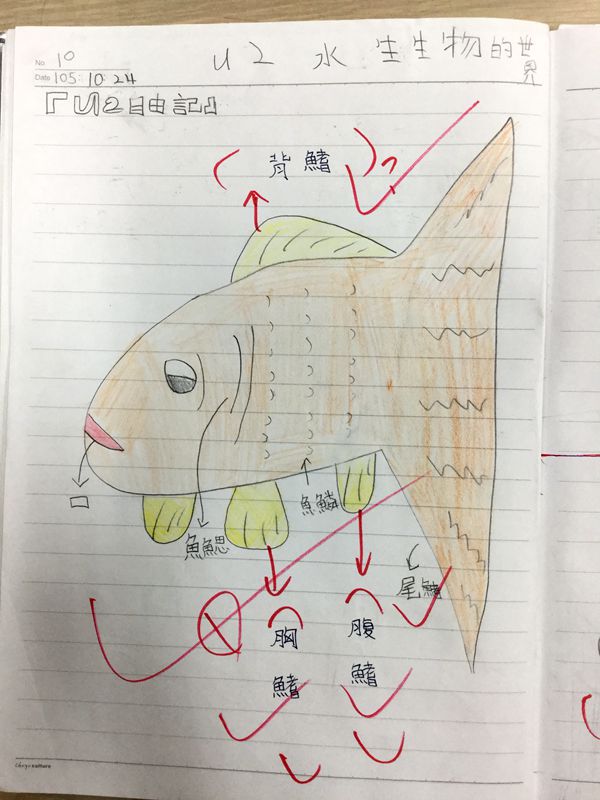 No 10
u2 水生生物的世界
Date 105.10.24
『U2自由記』
背鰭
口
魚鰓
魚鱗
尾鰭
胸鰭
腹鰭